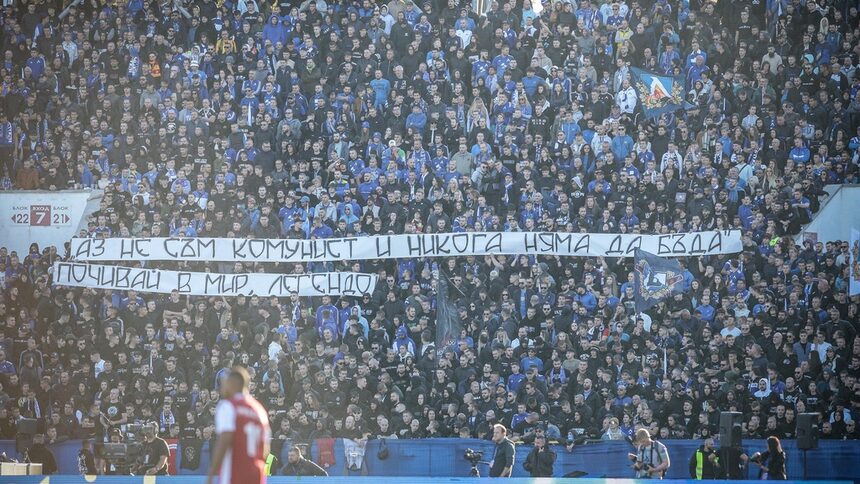 "АЗ НЕ СЪМ КОМУНИСТ И НИКОГА НЯМА ДА БЪДА"
ПОЧИВАЙ В МИР, ЛЕГЕНДО
БЛОК ВХОД БЛОК
22 7 21